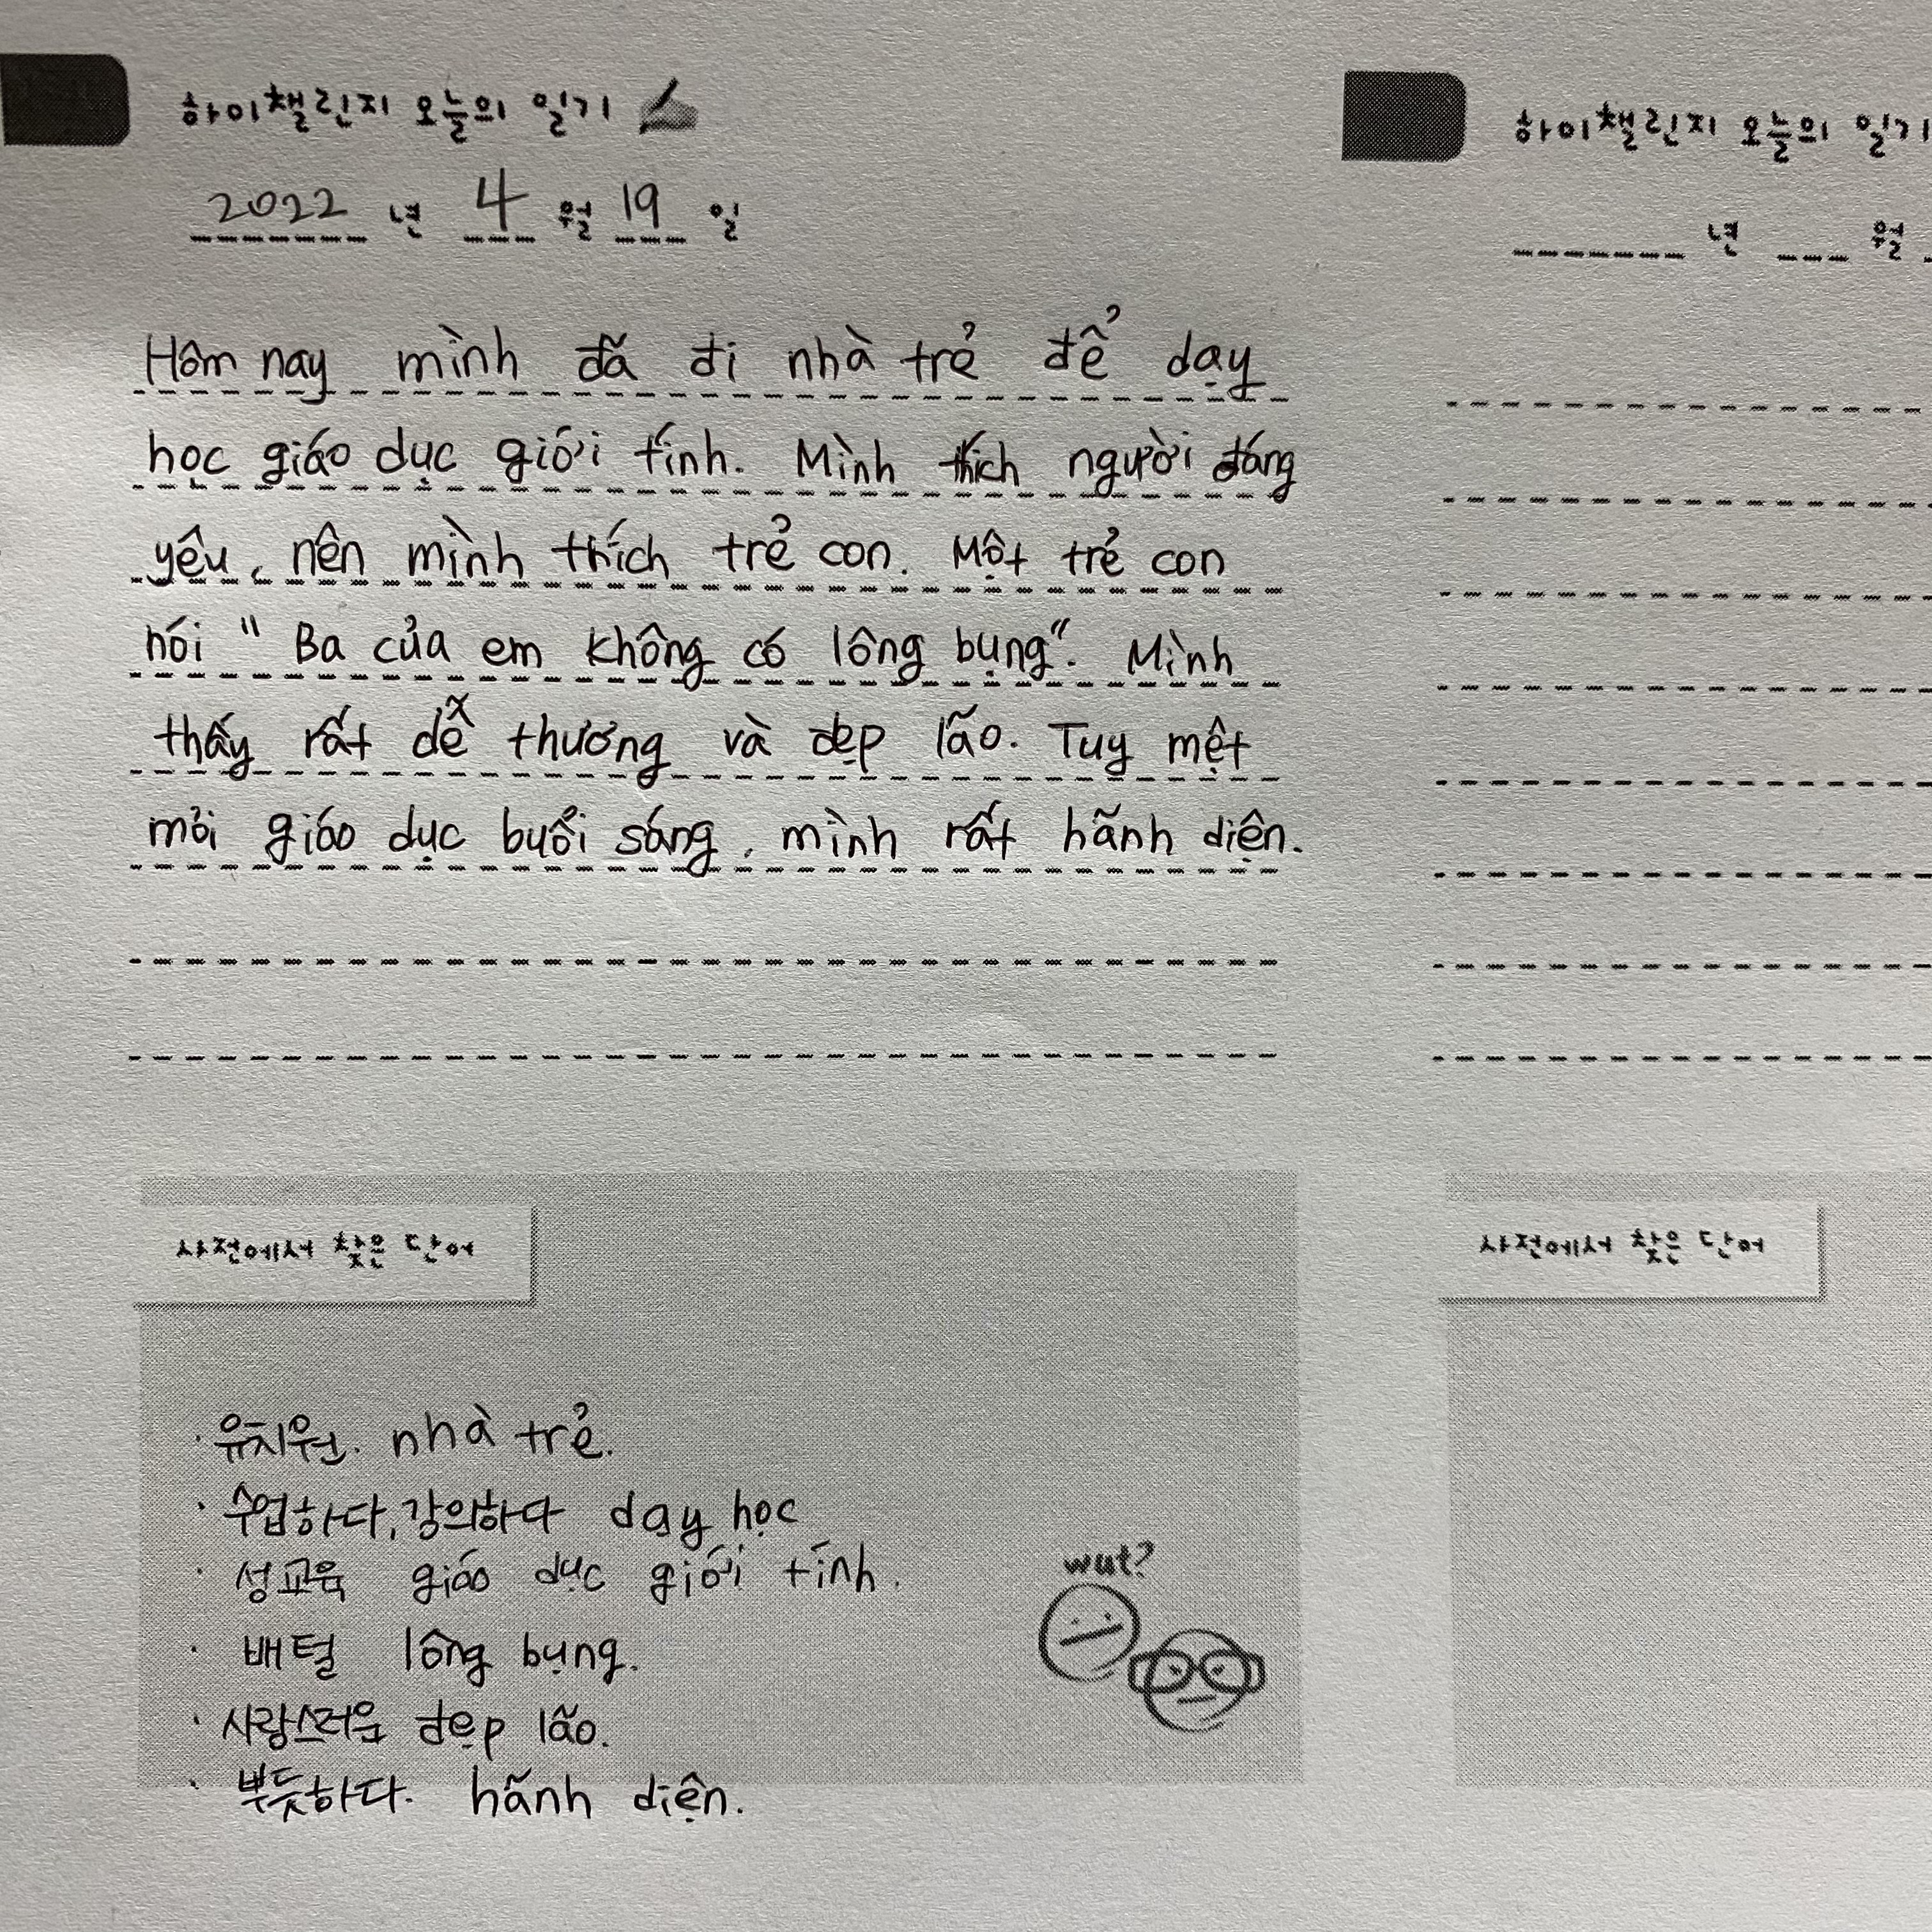 하이챌린지 오늘의 일기
2022 년 4 월 19 일
Hôm nay mình đã đi nhà trẻ để dạy
học giáo dục giới tính. Mình thích người đáng
yêu, nên mình thích trẻ con. Một trẻ con
nói " Ba của em không có lông bụng". Mình
thấy rất dễ thương và đẹp lão. Tuy mệt
mỏi giáo dục buổi sáng, mình rất hãnh diện.
사전에서 찾은 단어
· 유치원. nhà trẻ.
· 수업하다, 강의하다 dạy học
· 성교육 giáo dục giới tính.
· 배털 lông bụng.
· 사랑스러운 đẹp lão.
· 뿌듯하다. hãnh diện.
wut?
하이챌린지 오늘의 일기
년 월
사전에서 찾은 단어